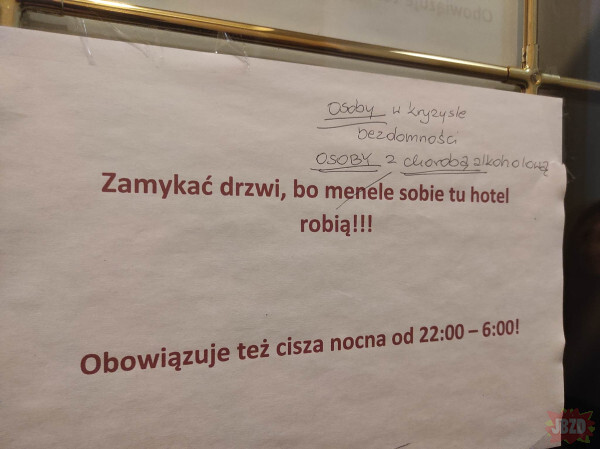 Obowiązuje
osoby w kryzysie
bezdomności
OSOBY z chorobą alkoholową
Zamykać drzwi, bo menele sobie tu hotel
robią!!!
Obowiązuje też cisza nocna od 22:00 – 6:00!
JBZD